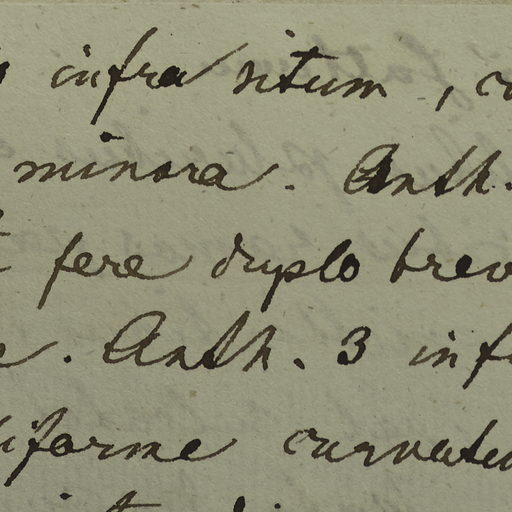 infra situm, c
minora. Anth.
fere duplo brev
. Anth. 3 inf
iforme curvatu